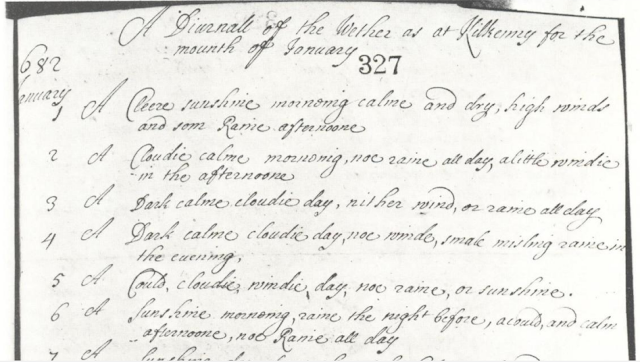 A Diurnall of the Wether as at Kilkenny for the
mounth of January
327
682
anuary
1 A Cleere sunshine morneing calme and dry, high winds
and som Raine afternoone
2 A Cloudie calme morneing, noe raine all day, a little windie
in the afternoone
3 A Dark calme cloudie day, nither wind, or raine all day
4 A Dark calme cloudie day, noe winde, smale misling raine in
the evening,
5 A Could, cloudie, windie, day, noe raine, or sunshine.
6 A Sunshine morneing, raine the night before, a could, and calm
afternoone, noe Raine all day
7 A Sunshine